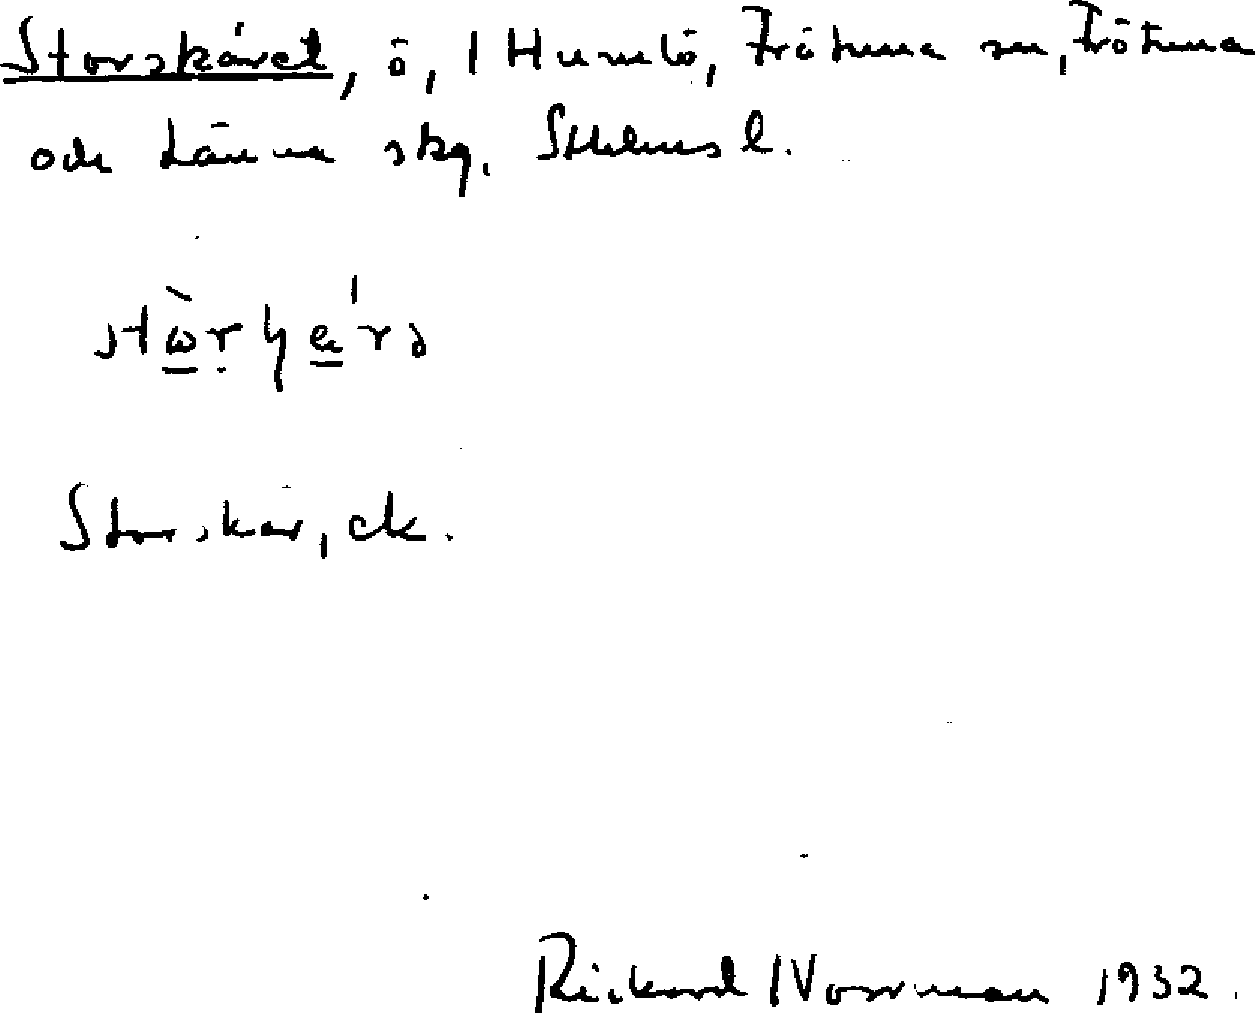 Storskäret, ö, Humlö, Frötuna sn, Frötuna
och Länna skg, Sthlms l.
Storskär, ek.
Rickard Norrman 1932.